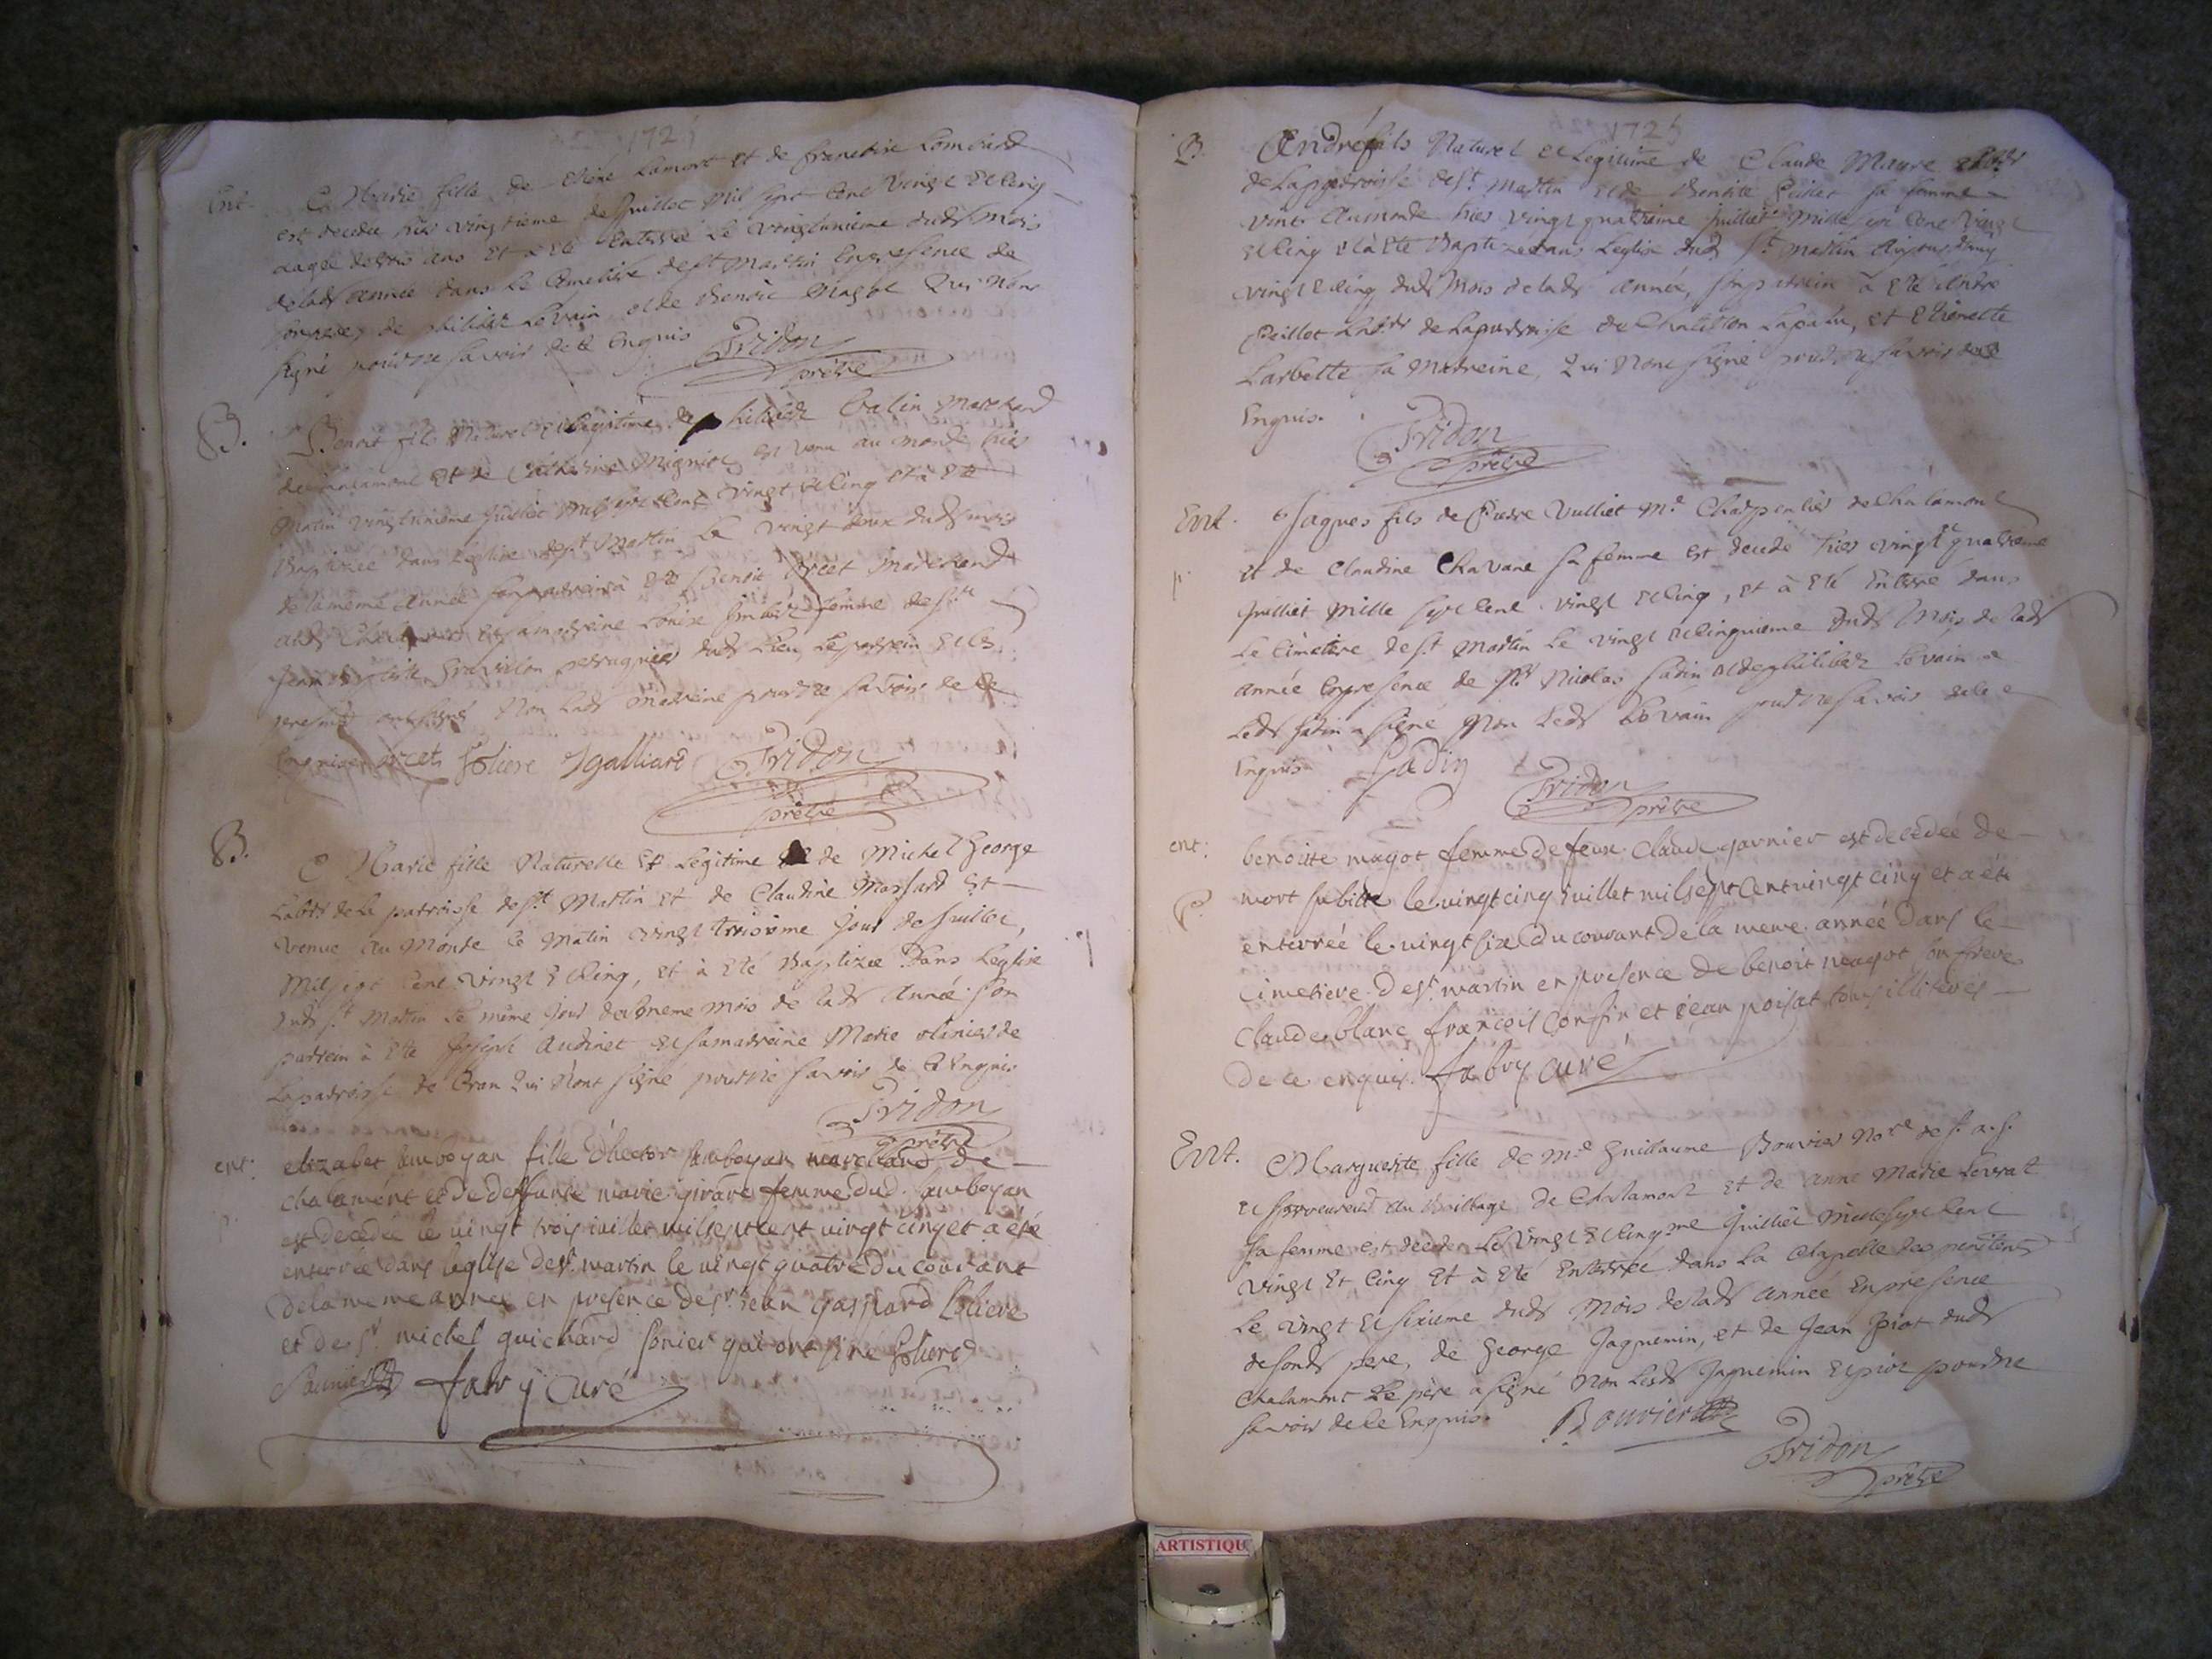 1725
Ent.
Marie fille de Lamort et de francoise Lombard
est decedee hier vingtieme de Juillet Mil sept Cent Vingt et Cinq
aagee de ans Et à Eté Enterree Le vingtunieme dudt Mois
deladt année dans Le Cimetiere de St Martin En presence de
de philibert Levain et de Benoit Magot Qui n'ont
signé pour ne savoir de ce Enquis Pridon
prêtre
B.
Benoit fils Naturel et légitime de philibert Catin Marchand
de Chalamont Et de Catherine Migniot est venu au monde hier
Matin vingtunieme Juillet Mil sept Cent vingt et Cinq et à Eté
Baptizee dans L'eglise de St Martin Le vingt deux dudt mois
de la même Année son parrein à Eté Benoit orcet Marchand
audt et sa marreine Louise Imbert femme de Sr
Jean Baptiste Gravillon perruquier dudt Lieu, Le parrein Et les
ont signé Non Ladt marreine pour ne savoir de ce
Enquise orcet foliere Jgalliard Pridon
prêtre
B.
Marie fille Naturelle Et Legitime de Michel George
Labor de la parroisse de St Martin Et de Claudine Massard Est
venue au Monde Ce Matin vingt troisieme Jour de Juillet,
Mil sept Cent vingt Et Cinq, et à Eté Baptizee Dans Leglise
dudt St Martin Le même Jour du meme mois de ladt Année son
parrein à Eté Joseph Audinet et sa marreine Marie de
La parroisse de Cran Qui N'ont signé pour ne savoir de ce Enquis
Pridon
prêtre
ent:
elizabet amboyan fille d'hector amboyan marchand de
chalamont et de deffunte marie girard femme dud. amboyan
est decedée le vingt trois iuillet mil sept cent vingt cinq et a été
enterrée dans leglise de St martin le vingt quatre du courant
de la meme année en presence de sr iean gaspard foliere
et de sr michel guichard sonier qui ont siné foliere
Saunier fabry Curé
1725
B.
André fils Naturel et Legitime de Claude Mayre Labor
de La parroisse de St Martin et de Benoite Peillet sa femme
vint Au monde hier vingt quatrieme Juillet Mille sept Cent Vingt
et Cinq et à Eté Baptizé dans Leglise dudt St Martin Aujourdhuy
vingt et Cinq dudt Mois de ladt Année, son parrein à Eté André
Peillet Labor de La parroise de Chatillon Lapalu, et Etienette
Larbette sa Marreine, Qui N'ont signé pour ne savoir de ce
Enquis. Pridon
prêtre
Ent.
p.
Jaques fils de Pierre Vulliet Me Charpentier de Chalamont
et de Claudine Chavane sa femme est decedé hier vingt quatrieme
Juilliet Mille sept Cent vingt et Cinq, et à Eté Enterré dans
Le Cimetiere de St Martin Le vingt et Cinquieme dudt Mois de ladt
année En presence de Sr Nicolas Jadin et de philibert Levain
Ledt Jadin a signé Non Ledt Levain pour ne savoir de ce
Enquis Jadin Pridon
prêtre
ent:
P.
benoitte magot femme de feux Claude garnier est decedée de
mort subitte le vingt cinq iuillet mil sept Cent vingt cinq et a été
enterrée le vingt six du courant de la meme année dans le
Cimetiere de St martin en presence de benoit magot son frere
Claude blanc françois confin et iean poisat tous illiterés
de ce enquis. fabry Curé
Ent.
Marguerite fille de Me Guillaume Bouvier Nore de
et procureur Au Bailliage de Chalamont Et de anne Marie Levrat
sa femme est decedee Le Vingt Et Cinqme Juilliet Mille sept Cent
vingt Et Cinq Et à Eté Enterrée dans La Chapelle des penitents
Le vingt Et sixieme dudt Mois de ladt année En presence
de sondt pere, de George Jaquemin, et de Jean Piot dudt
Chalamont Le père a signé Non Lesdt Jaquemin Et piot pour ne
savoir de ce Enquis. Bouvier
Pridon
prêtre
ARTISTIQU